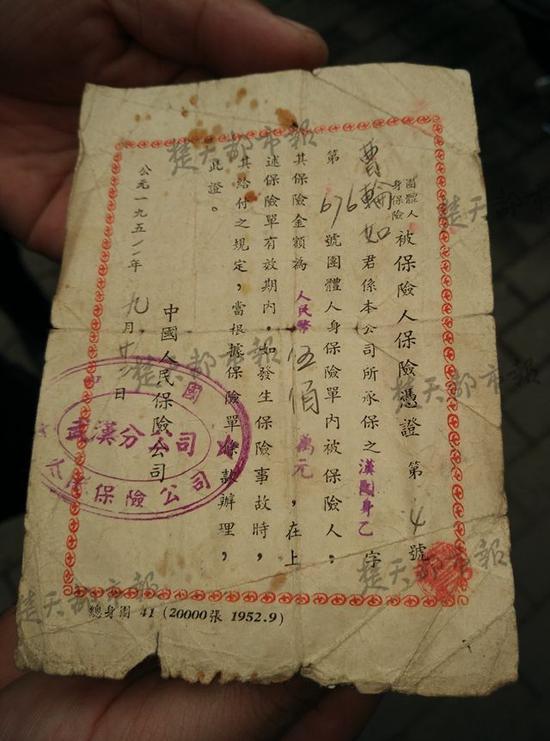 團體人身保險 被保險人保險憑證 第 4 號
曹輪如 君係本公司所承保之 漢團身乙 字
第 676 號團體人身保險單內被保險人,
其保險金額為 人民幣 伍佰 萬元,在上
述保險單有效期內,如發生保險事故時,
其給付之規定,當根據保險單條款辦理,
此證。
中國人民保險公司
公元一九五二年 九月 日
國
武漢分公司
保險公司
總身團 41 (20000張 1952.9)
楚天都市報
楚天都市報
楚天都市報
楚天都市報
楚天都市報
楚天都市報